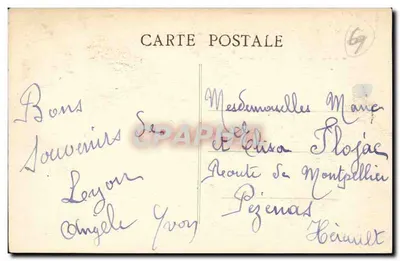 CARTE POSTALE
69
Bons
Souvenirs de
Lyon
Angèle Yvon
Mesdemoiselles Marie
et Elisa Flojac
Route de Montpellier
Pézenas
Hérault